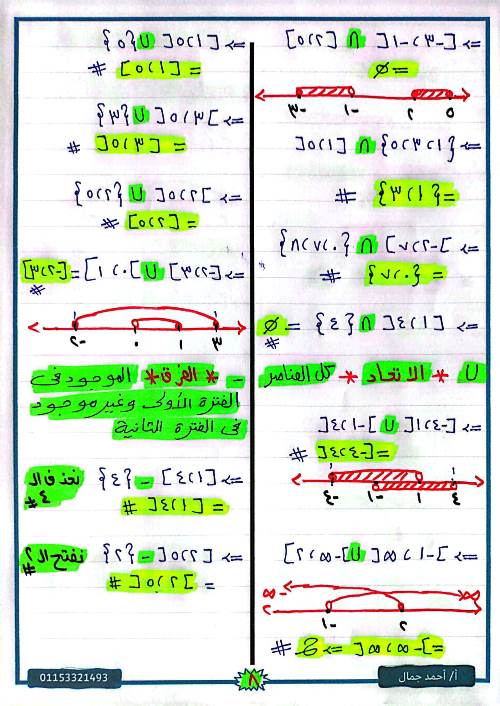 => [-٣، -١[ ∩ [٢، ٥]
= ∅
-٣ -١ ٢ ٥
=> {١، ٣، ٥} ∩ [١، ٥[
= {١، ٣} #
=> ]-٢، ٧] ∩ {٠، ٧، ٨}
= {٠، ٧} #
=> [١، ٤[ ∩ {٤} = ∅ #
U * الاتحاد * كل العناصر
=> [-٤، ١[ U [-١، ٤[
= [-٤، ٤[ #
-٤ -١ ١ ٤
=> [-١، ∞[ U ]-∞، ٢]
-∞ ∞
-١ ٢
= ]-∞، ∞[ => ح #
=> [١، ٥[ U {٥}
= [١، ٥] #
=> ]٣، ٥[ U {٣}
= [٣، ٥[ #
=> ]٢، ٥[ U {٢، ٥}
= [٢، ٥] #
=> [-٢، ٣] U [٠، ١] = [-٢، ٣] #
-٢ ٠ ١ ٣
- * الفرق * الموجود فى
الفترة الأولى وغير موجود
فى الفترة الثانية
=> [١، ٤] - {٤} نحذف ال ٤ #
= [١، ٤[ #
=> [٢، ٥[ - {٢} نفتح ال ٢ #
= ]٢، ٥[ #
أ/ أحمد جمال
٨
01153321493